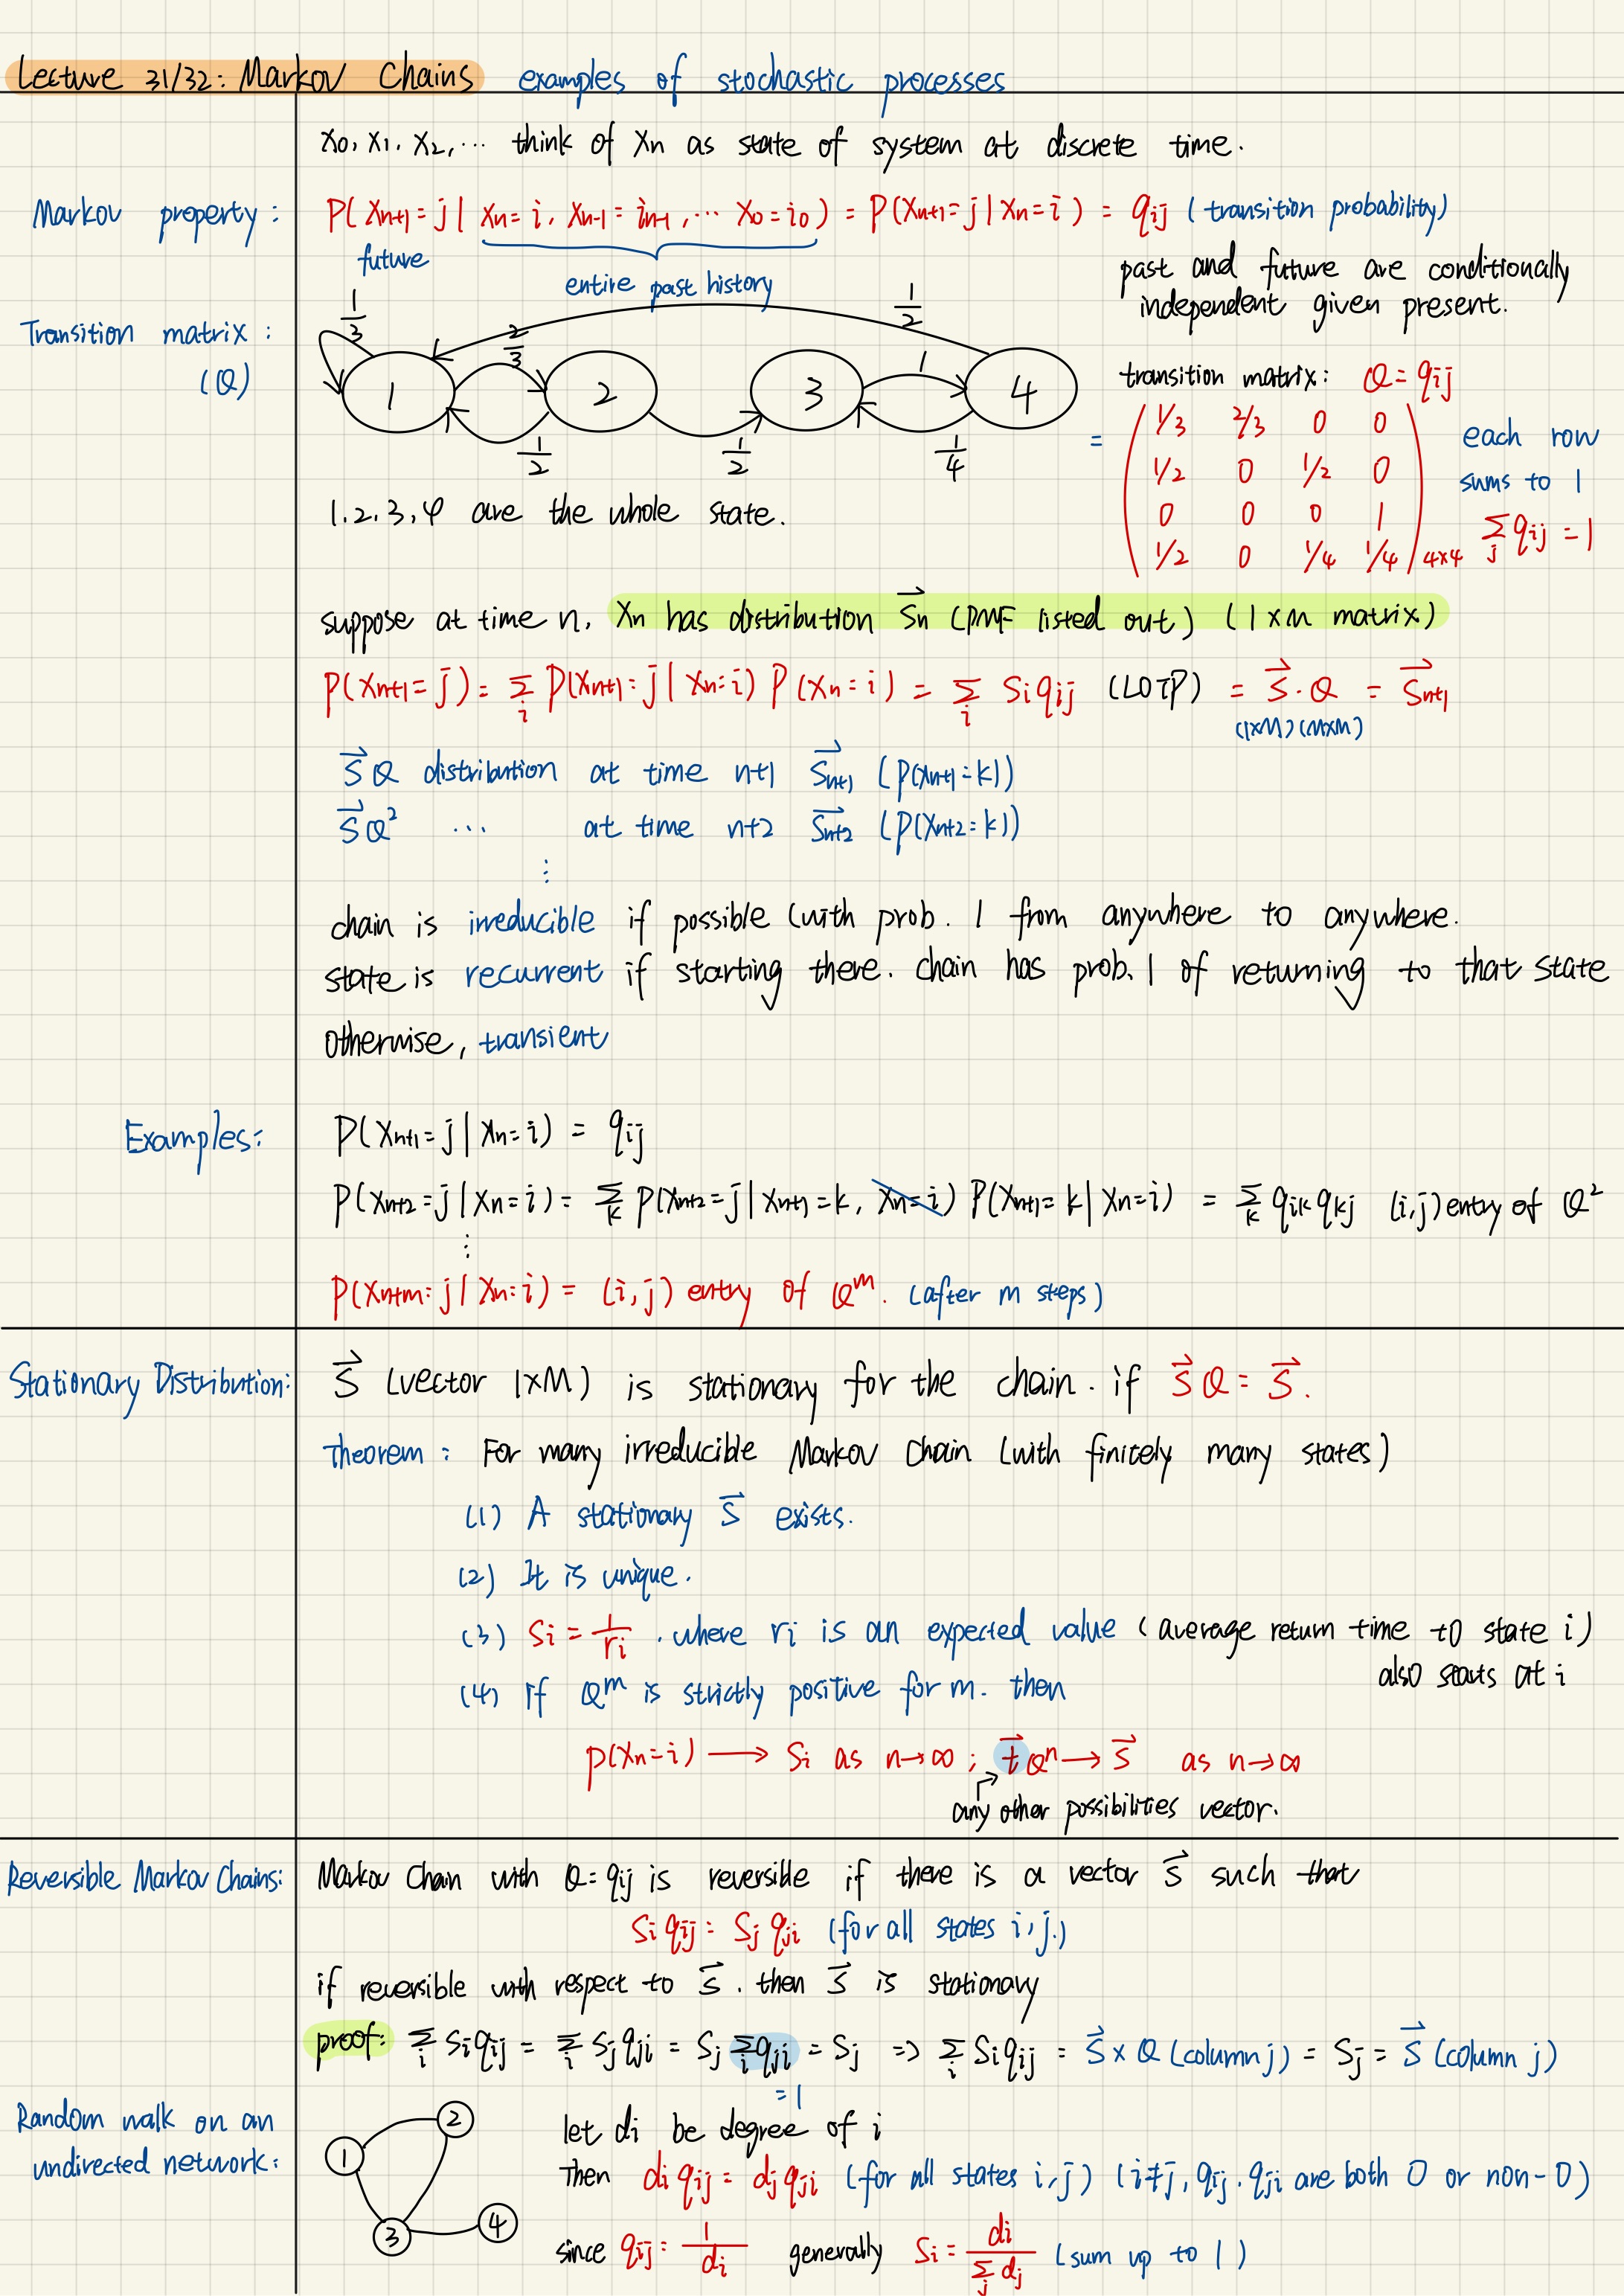 Lecture 31/32: Markov Chains examples of stochastic processes
X0, X1, X2, ... think of Xn as state of system at discrete time.
Markov property: P(Xn+1 = j | Xn = i, Xn-1 = in-1, ... X0 = i0) = P(Xn+1 = j | Xn = i) = qij (transition probability)
future
entire past history
past and future are conditionally
independent given present.
Transition matrix:
(Q)
1/3
2/3
1/2
1
1 2 3 4
1/2
1/2
1/4
transition matrix: Q = qij
= ( 1/3 2/3 0 0
1/2 0 1/2 0
0 0 0 1
1/2 0 1/4 1/4 ) 4x4
each row
sums to 1
Σj qij = 1
1, 2, 3, 4 are the whole state.
suppose at time n, Xn has distribution S⃗n (PMF listed out) (1 x M matrix)
P(Xn+1 = j) = Σi P(Xn+1 = j | Xn = i) P(Xn = i) = Σi Si qij (LOTP) = S⃗ · Q = S⃗n+1
(1xM) (MxM)
S⃗Q distribution at time n+1 S⃗n+1 (P(Xn+1 = k))
S⃗Q² ... at time n+2 S⃗n+2 (P(Xn+2 = k))
⋮
chain is irreducible if possible (with prob. 1 from anywhere to anywhere.
state is recurrent if starting there. chain has prob. 1 of returning to that state
otherwise, transient
Examples: P(Xn+1 = j | Xn = i) = qij
P(Xn+2 = j | Xn = i) = Σk P(Xn+2 = j | Xn+1 = k, Xn = i) P(Xn+1 = k | Xn = i) = Σk qik qkj (i,j) entry of Q²
⋮
P(Xn+m = j | Xn = i) = (i,j) entry of Q^m. (after m steps)
Stationary Distribution: S⃗ (vector 1xM) is stationary for the chain. if S⃗Q = S⃗.
theorem: For many irreducible Markov Chain (with finitely many states)
(1) A stationary S⃗ exists.
(2) It is unique.
(3) Si = 1/ri . where ri is an expected value (average return time to state i)
also starts at i
(4) if Q^m is strictly positive for m. then
P(Xn = i) → Si as n→∞ ; t⃗Q^n → S⃗ as n→∞
any other possibilities vector.
Reversible Markov Chains: Markov Chain with Q = qij is reversible if there is a vector S⃗ such that
Si qij = Sj qji (for all states i, j.)
if reversible with respect to S⃗. then S⃗ is stationary
proof: Σi Si qij = Σi Sj qji = Sj Σi qji = Sj => Σi Si qij = S⃗ x Q (column j) = Sj = S⃗ (column j)
= 1
Random walk on an
undirected network:
1 2 3 4
let di be degree of i
Then di qij = dj qji (for all states i, j) (i≠j, qij, qji are both 0 or non-0)
since qij = 1/di generally Si = di / Σj dj (sum up to 1)